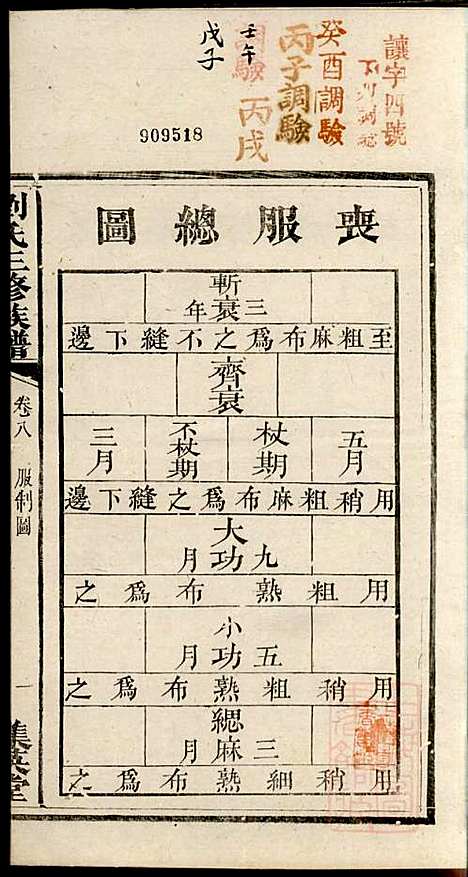 讓字四號
癸酉調驗
丙子調驗
調驗 丙戌
壬午
戊子
909518
喪服總圖
斬衰三年
至粗麻布爲之不縫下邊
齊衰
五月
杖期
不杖期
三月
用稍粗麻布爲之縫下邊
大功九月
用粗熟布爲之
小功五月
用稍粗熟布爲之
緦麻三月
用稍細熟布爲之
劉氏三修族譜
卷八 服制圖
一
集英堂